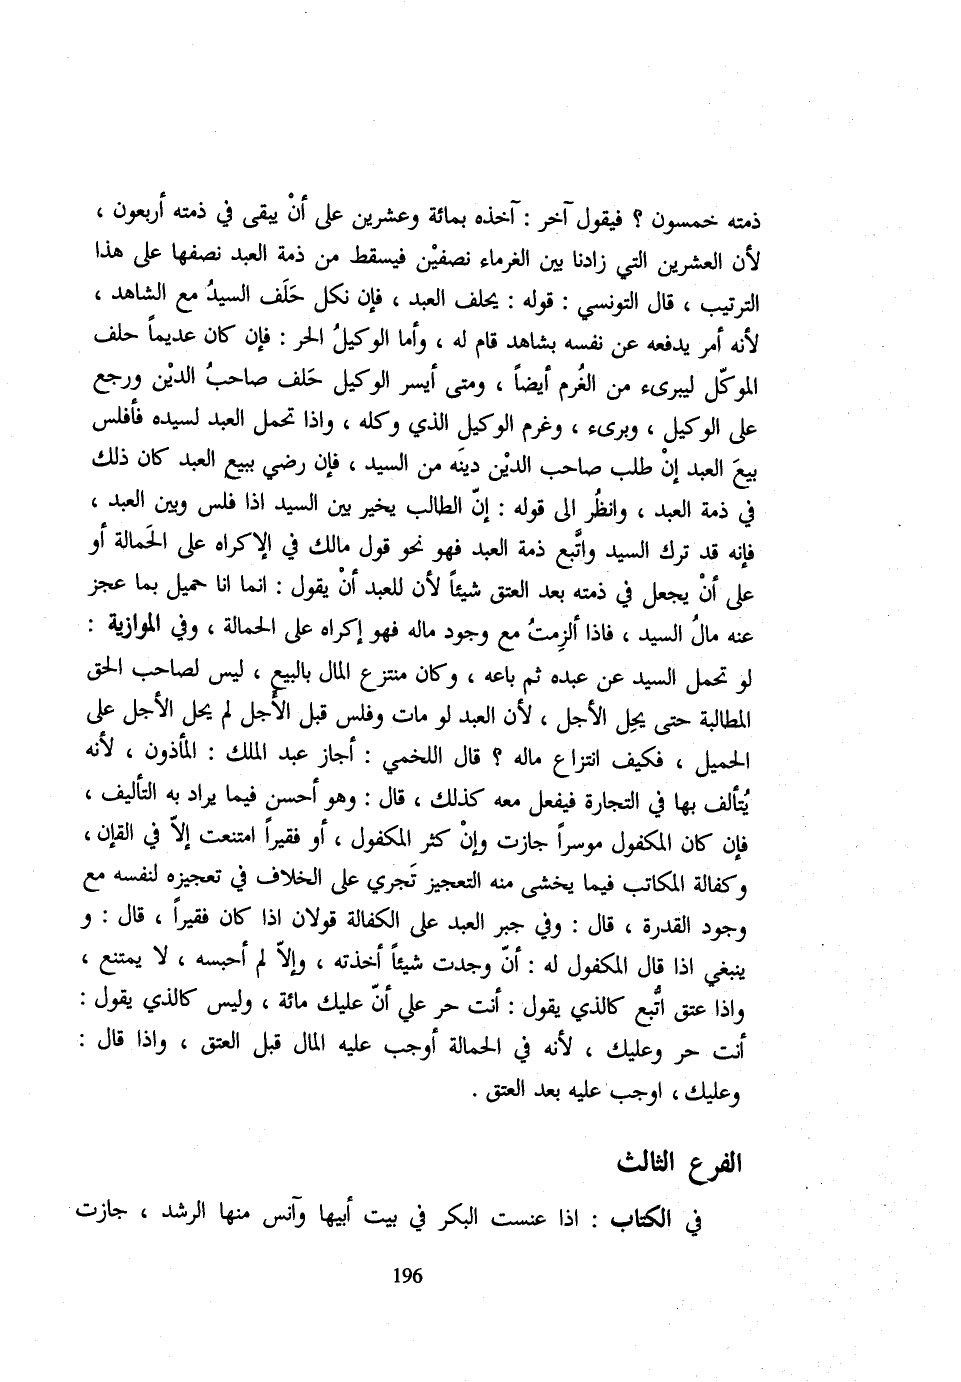 ذمته خمسون ؟ فيقول آخر : آخذه بمائة وعشرين على أنْ يبقى في ذمته أربعون ،
لأن العشرين التي زادنا بين الغرماء نصفيْن فيسقط من ذمة العبد نصفها على هذا
الترتيب ، قال التونسي : قوله : يحلف العبد ، فإن نكل حَلَف السيدُ مع الشاهد ،
لأنه أمر يدفعه عن نفسه بشاهد قام له ، وأما الوكيلُ الحر : فإن كان عديماً حلف
الموكّل ليبرىء من الغُرم أيضاً ، ومتى أيسر الوكيل حَلف صاحبُ الديْن ورجع
على الوكيل ، وبرىء ، وغرم الوكيل الذي وكله ، واذا تحمل العبد لسيده فأفلس
بيعَ العبد إنْ طلب صاحب الديْن دينَه من السيد ، فإن رضي ببيع العبد كان ذلك
في ذمة العبد ، وانظُر الى قوله : إنّ الطالب يخير بين السيد اذا فلس وبين العبد ،
فإنه قد ترك السيد واتَّبع ذمة العبد فهو نحو قول مالك في الإكراه على الحَمالة أو
على أنْ يجعل في ذمته بعد العتق شيئاً لأن للعبد أنْ يقول : انما انا حميل بما عجز
عنه مالُ السيد ، فاذا ألزِمتُ مع وجود ماله فهو إكراه على الحمالة ، وفي الموازية :
لو تحمل السيد عن عبده ثم باعه ، وكان منتزع المال بالبيع ، ليس لصاحب الحق
المطالبة حتى يحِل الأجل ، لأن العبد لو مات وفلس قبل الأجل لم يحل الأجل على
الحميل ، فكيف انتزاع ماله ؟ قال اللخمي : أجاز عبد الملك : المأذون ، لأنه
يُتألف بها في التجارة فيفعل معه كذلك ، قال : وهو أحسن فيما يراد به التأليف ،
فإن كان المكفول موسراً جازت وإنْ كثر المكفول ، أو فقيراً امتنعت إلاّ في القإن ،
وكفالة المكاتب فيما يخشى منه التعجيز تَجري على الخلاف في تعجيزه لنفسه مع
وجود القدرة ، قال : وفي جبر العبد على الكفالة قولان اذا كان فقيراً ، قال : و
ينبغي اذا قال المكفول له : أنّ وجدت شيئاً أخذته ، وإلاّ لم أحبسه ، لا يمتنع ،
واذا عتق اتُّبع كالذي يقول : أنت حر علي أنّ عليك مائة ، وليس كالذي يقول :
أنت حر وعليك ، لأنه في الحمالة أوجب عليه المال قبل العتق ، واذا قال :
وعليك ، اوجب عليه بعد العتق .
الفرع الثالث
في الكتاب : اذا عنست البكر في بيت أبيها وآنس منها الرشد ، جازت
196